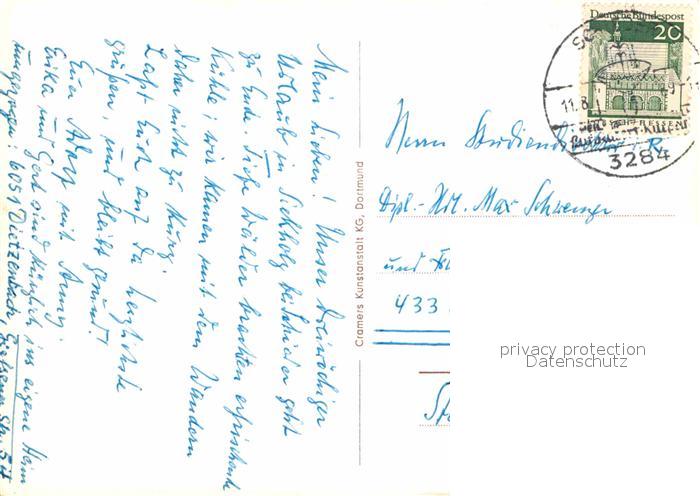 Mein Lieben! Unser dreiwöchiger
Urlaub in Siekholz bei Schieder geht
zu Ende. Tiefe Wälder brachten erfrischende
Kühle; wir kamen mit dem Wandern
daher nicht zu kurz.
Laßt Euch auf das herzlichste
grüßen, und bleibt gesund!
Euer Adolf mit Anny.
Erika und Gert sind kürzlich ins eigene Heim
umgezogen: 6051 Dietzenbach,
Cramers Kunstanstalt KG, Dortmund
Deutsche Bundespost
20
HESSEN
11.8.
3284
Herrn Studiendirektor i. R.
Dipl.- Max Schwenger
und
433
privacy protection
Datenschutz